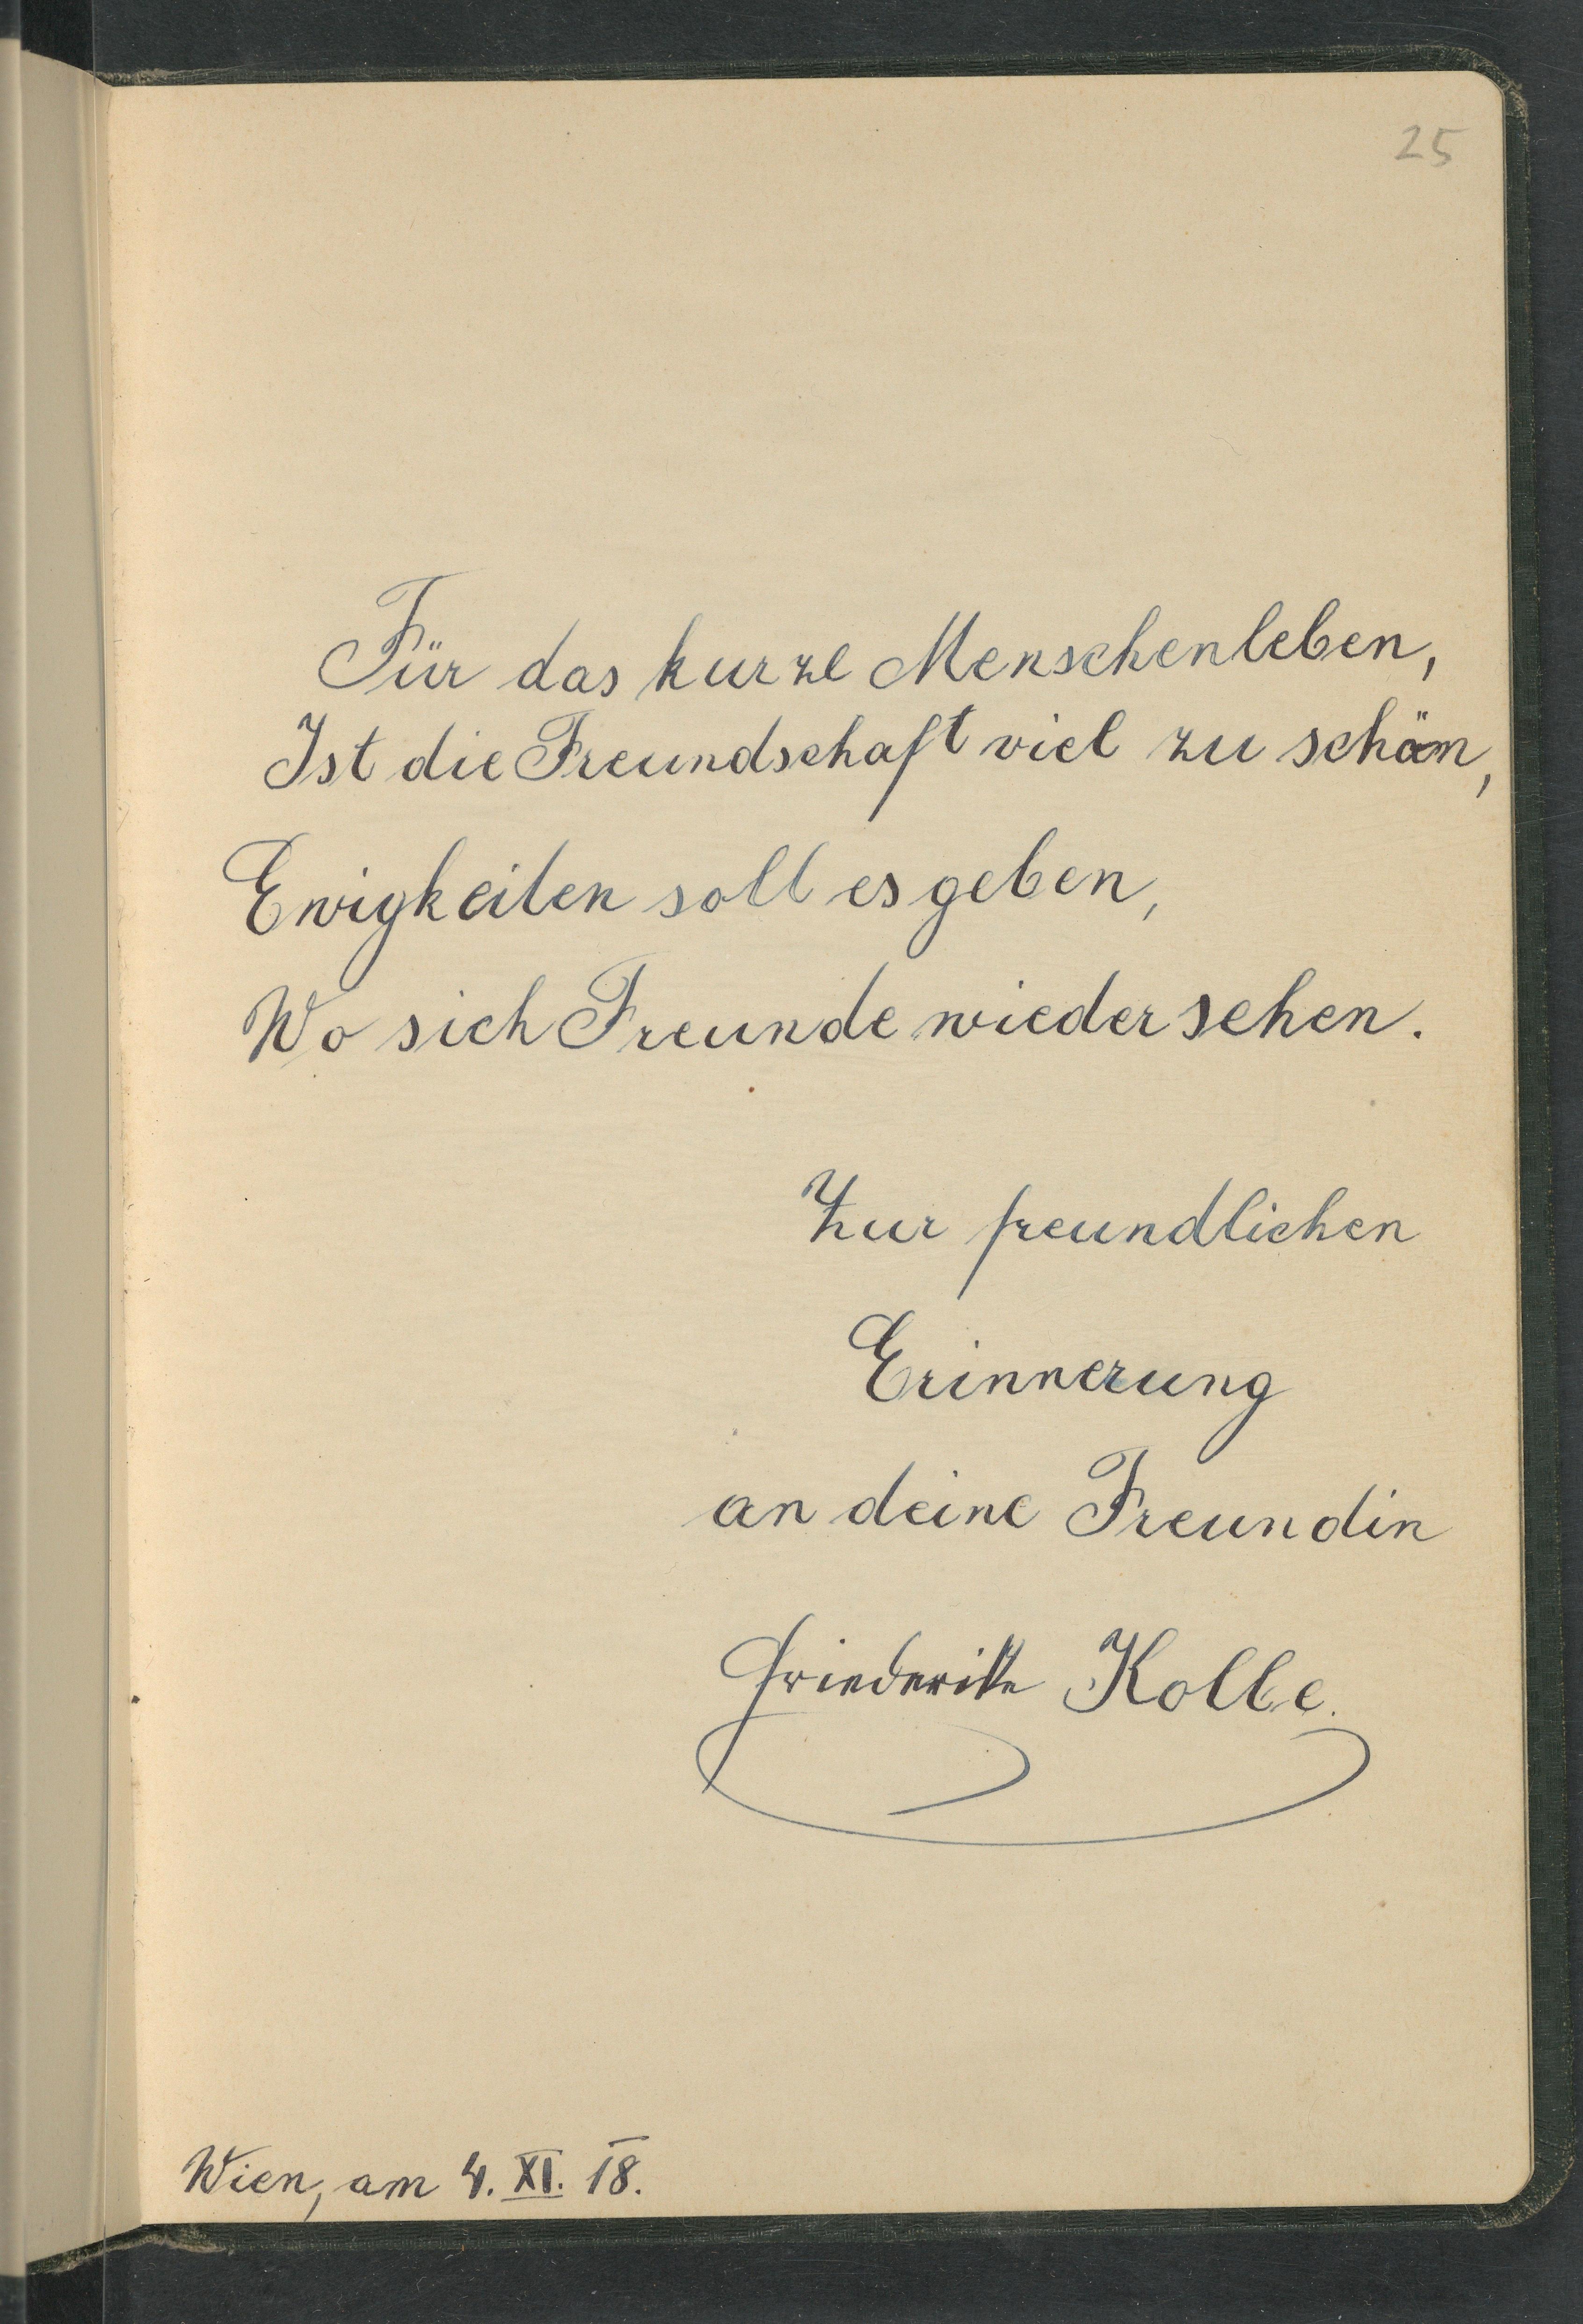 25
Für das kurze Menschenleben,
Ist die Freundschaft viel zu schön,
Ewigkeiten soll es geben,
Wo sich Freunde wiedersehen.
Zur freundlichen
Erinnerung
an deine Freundin
Friederike Kolbe.
Wien, am 4. XI. 18.